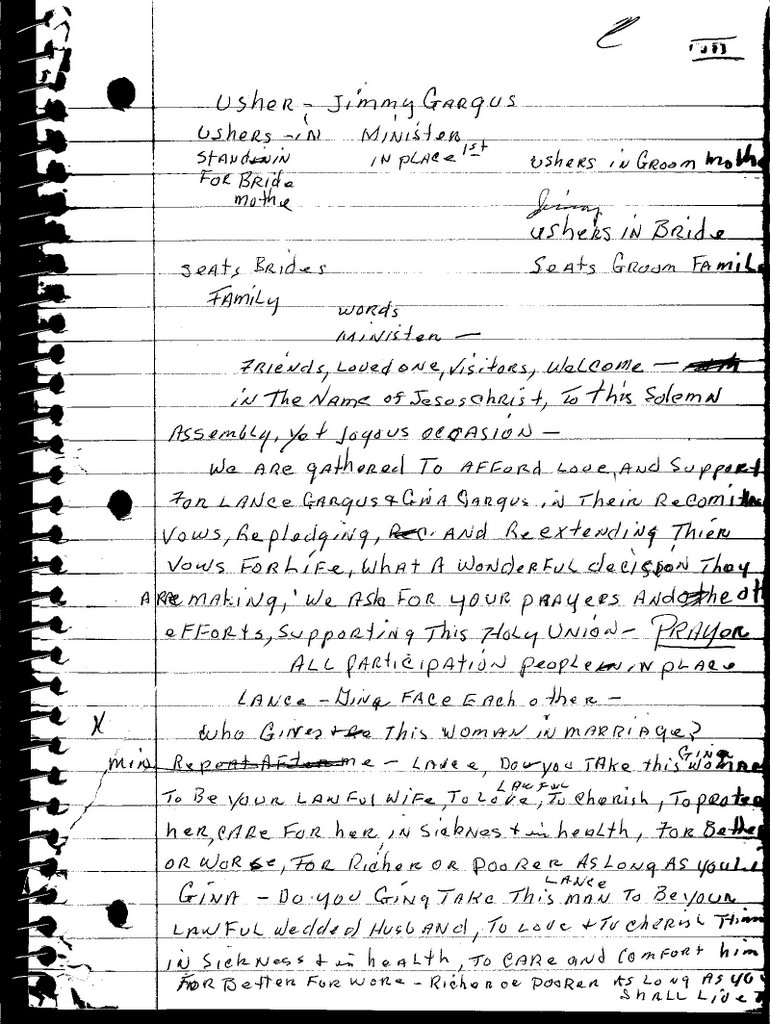 III
Usher - Jimmy Gargus
Ushers - in Minister
Stand in in place 1st ushers in Groom mothe
For Bride
mothe
Jimmy
ushers in Bride
seats Brides Seats Groom Famil
Family
words
Minister -
Friends, Loved one, Visitors, Welcome -
in The Name of Jesus Christ, To this Solemn
Assembly, yet joyous occasion -
We are gathered To Afford Love, And Support
For Lance Gargus & Gina Gargus in Their Recomit
vows, Repledging, Rec. And Reextending Thier
vows For Life, What A wonderful decision They
Are making, We Ask For your prayers And othe ot
efforts, Supporting This Holy Union - Prayor
All participation people in place
Lance - Gina Face Each other -
X Who Gives this woman in marriage?
Gina
Min Repeat After me - Lance, Do you TAke this woman
Lawful
To Be your Lawful wife, To Love, To Cherish, To protec
her, care For her, in Sickness + in health, For Bette
or worse, For Richer or poorer As Long As you Li
Lance
Gina - Do you Gina Take This man To Be your
Lawful wedded Husband, To Love + To cherish
in Sickness + in health, To care and comfort him
For Better For wore - Richer or poorer As Long As yo
Shall Live